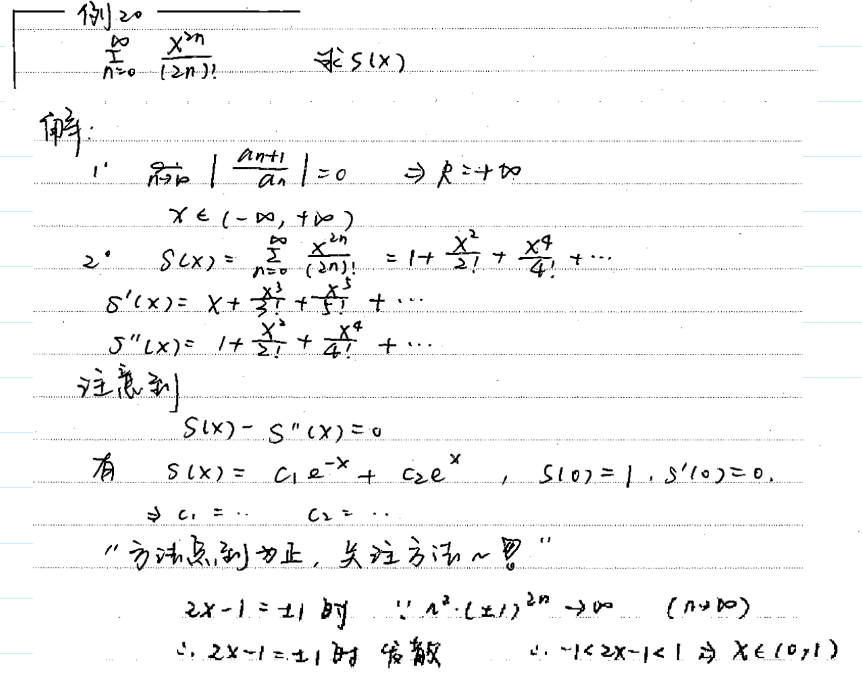 例20
∞∑n=0 x^{2n}/(2n)! 求S(x)
解:
1° lim n→∞ |a_{n+1}/a_n| = 0 ⇒ R=+∞
x∈(-∞,+∞)
2° S(x)= ∞∑n=0 x^{2n}/(2n)! = 1+ x²/2! + x⁴/4! + ···
S'(x)= x+ x³/3! + x⁵/5! + ···
S''(x)= 1+ x²/2! + x⁴/4! + ···
注意到
S(x)- S''(x)=0
有 S(x)= c₁e^{-x} + c₂e^{x} , S(0)=1, S'(0)=0.
⇒ c₁ = ·· c₂ = ··
"方法点到为止, 关注方法~ "
2x-1=±1时 ∵ n²·(±1)^{2n} →∞ (n→∞)
∴ 2x-1=±1时 发散 ∴ -1<2x-1<1 ⇒ x∈(0,1)